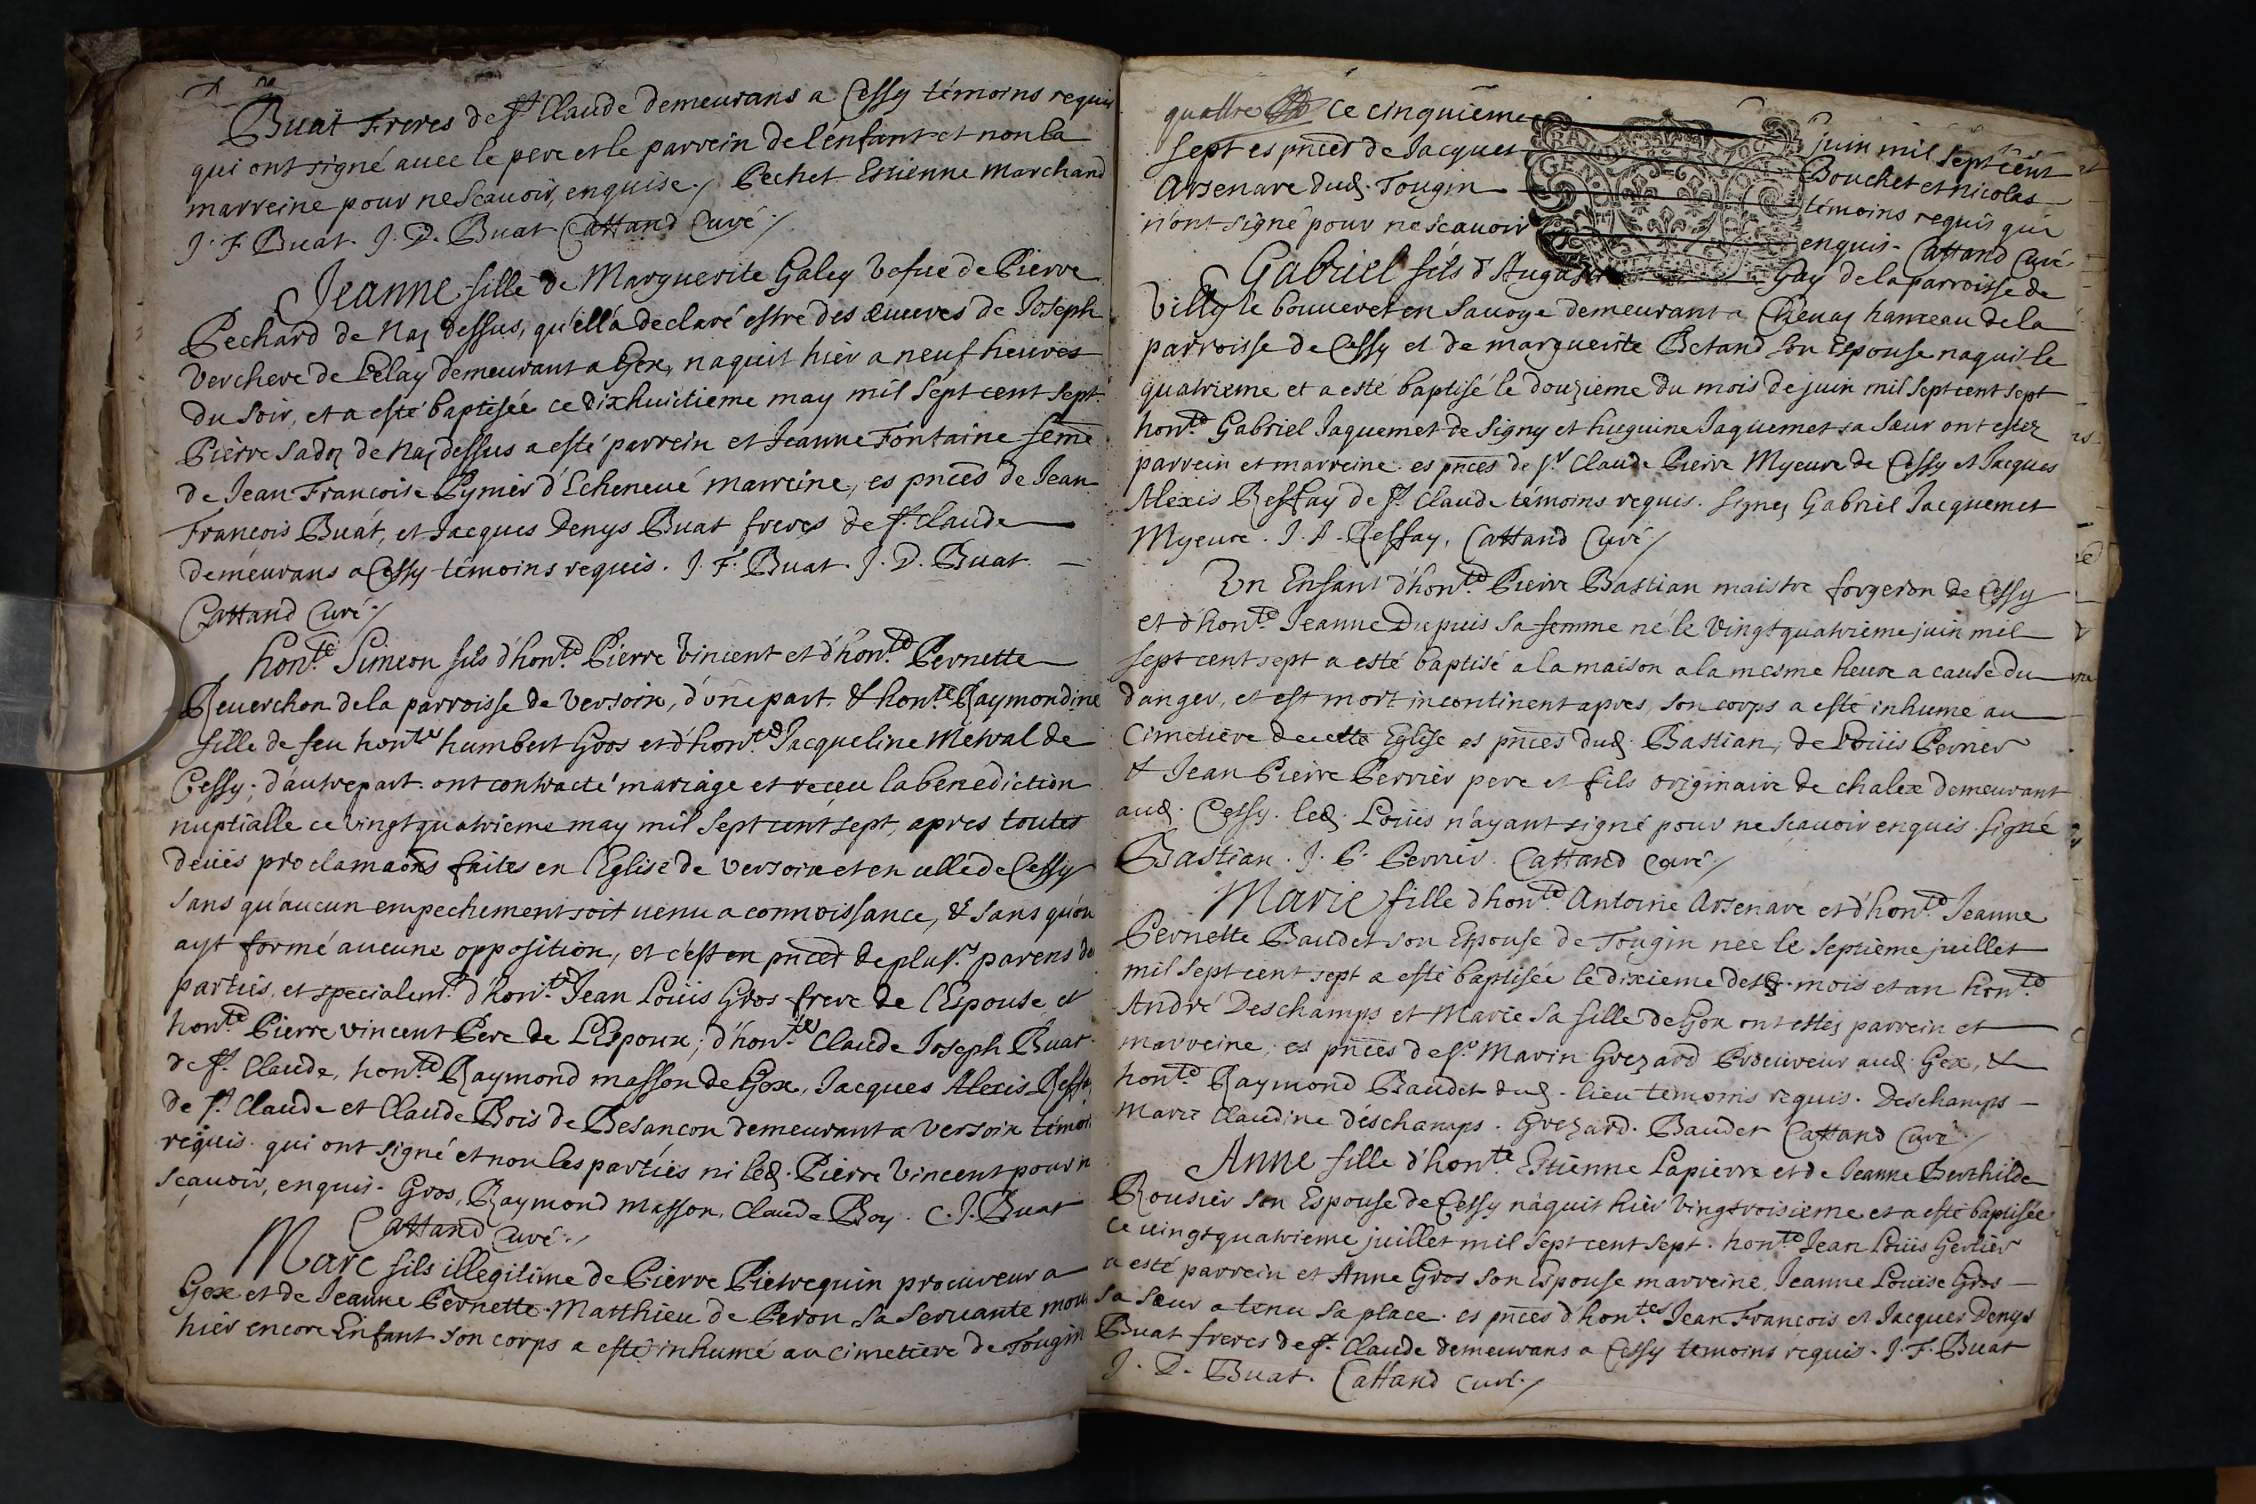 Buat Freres de st Claude demeurans a Cessy témoins requis
qui ont signé avec le pere et le parrein de l'enfant et non la
marreine pour ne scavoir, enquise./ Pechet Estienne Marchand
J. F. Buat. J. D. Buat Cattand Curé./
Jeanne fille de Marguerite Galey Vefue de Pierre
Pechard de Naz dessus, qu'ell'a declaré estre des œuvres de Joseph
Verchere de Lelay demeurant a Gex, naquit hier a neuf heures
du soir, et a esté baptisée ce dixhuitieme may mil sept cent sept.
Pierre Sadoz de Naz dessus a esté parrein et Jeanne Fontaine feme
de Jean Francoise Pymier d'Echenevé marreine, es pnces de Jean
François Buat, et Jacques Denys Buat freres de st. Claude
demeurans a Cessy témoins requis. J. F. Buat. J. D. Buat. —
Cattand Curé./
honte. Simeon fils d'honte. Pierre Vincent et d'honte. Pernette
Reverchon de la parroisse de Versoix, d'une part. & honte. Raymondine
fille de feu hontes humbert Goos et d'honte. Jacqueline Merval de
Cessy; d'autre part. ont contracté mariage et receu la benediction
nuptialle ce vingt quatrieme may mil sept cent sept, apres toutes
deües proclamaons faites en l'Eglise de Versoix et en celle de Cessy
sans qu'aucun empechement soit venu a connoissance, & sans qu'on
ayt formé aucune opposition, et c'est en pnces de plusrs parens des
parties, et specialemt. d'honte. Jean Loüis Gros frere de l'Espouse, et
honte. Pierre Vincent Pere de L'Espoux; d'hontes Claude Joseph Buat
de st. Claude, honte. Raymond masson de Gex, Jacques Alexis Reffay
de st. Claude et Claude Bois de Besancon demeurant a Versoix témoins
requis. qui ont signé et non les parties ni led. Pierre Vincent pour ne
sçavoir, enquis. Gros, Raymond Masson, Claude Boy. C. J. Buat
Cattand Curé./
Marc fils illegitime de Pierre Pietrequin procureur a
Gex et de Jeanne Pernette Matthieu de Peron sa servante mou
hier encore Enfant son corps a esté inhumé au cimetiere de Tougin
quattre ce cinquième juin mil sept cent
sept es pnces de Jacques Bouchet et nicolas
Arsenare dud. Tougin témoins requis qui
n'ont signé pour ne scavoir enquis. Cattand Curé.
Gabriel fils d'August Gay de la parroisse de
Villy le bouveret en Savoye demeurant a Chevaz hameau de la
parroisse de Cessy et de marguerite Betand son Espouse naquit le
quatrieme et a esté baptisé le douzieme du mois de juin mil sept cent sept
honte. Gabriel Jaquemet de Signy et huguine Jaquemet sa sœur ont estez
parrein et marreine. es pnces de sr Claude Pierre Myeure de Cessy et Jacques
Alexis Reffay de st. Claude témoins requis. Signez Gabriel Jacquemet
Myeure. J. A. Reffay, Cattand Curé/
Un Enfant d'honte. Pierre Bastian maistre forgeron de Cessy
et d'honte. Jeanne Dupuis sa femme né le vingt quatrieme juin mil
sept cent sept a esté baptisé a la maison a la mesme heure a cause du
danger, et est mort incontinent apres, son corps a esté inhumé au
Cimetiere de cette Eglise es pnces dud. Bastian, de Loüis Perrier
& Jean Pierre Perrier pere et fils originaire de chalex demeurant
aud. Cessy. led. Loüis n'ayant signé pour ne sçavoir enquis. signé
Bastian. J. P. Perrier. Cattand Curé/
Marie fille d'honte. Antoine Arsenare et d'honte. Jeanne
Pernette Baudet son Espouse de Tougin née le septieme juillet
mil sept cent sept a esté baptisée le dixieme desd. mois et an honte.
André Deschamps et Marie sa fille de Gex ont estéz parrein et
marreine, es pnces de sr. Marin Grezard Procureur aud. Gex, &
honte. Raymond Baudet dud. lieu temoins requis. Deschamps —
Marie Claudine déschamps. Grezard. Baudet Cattand Curé./
Anne fille d'honte. Estienne Lapierre et de Jeanne Berthilde
Rousier son Espouse de Cessy naquit hier vingt troisieme et a esté baptisée
ce vingt quatrieme juillet mil sept cent sept. honte. Jean Loüis Gerlier
a esté parrein et Anne Gros son Espouse marreine, Jeanne Louise Gros —
sa sœur a tenu sa place. es pnces d'hontes. Jean François et Jacques Denys
Buat freres de st. Claude demeurans a Cessy temoins requis. J. F. Buat
J. D. Buat. Cattand Curé./